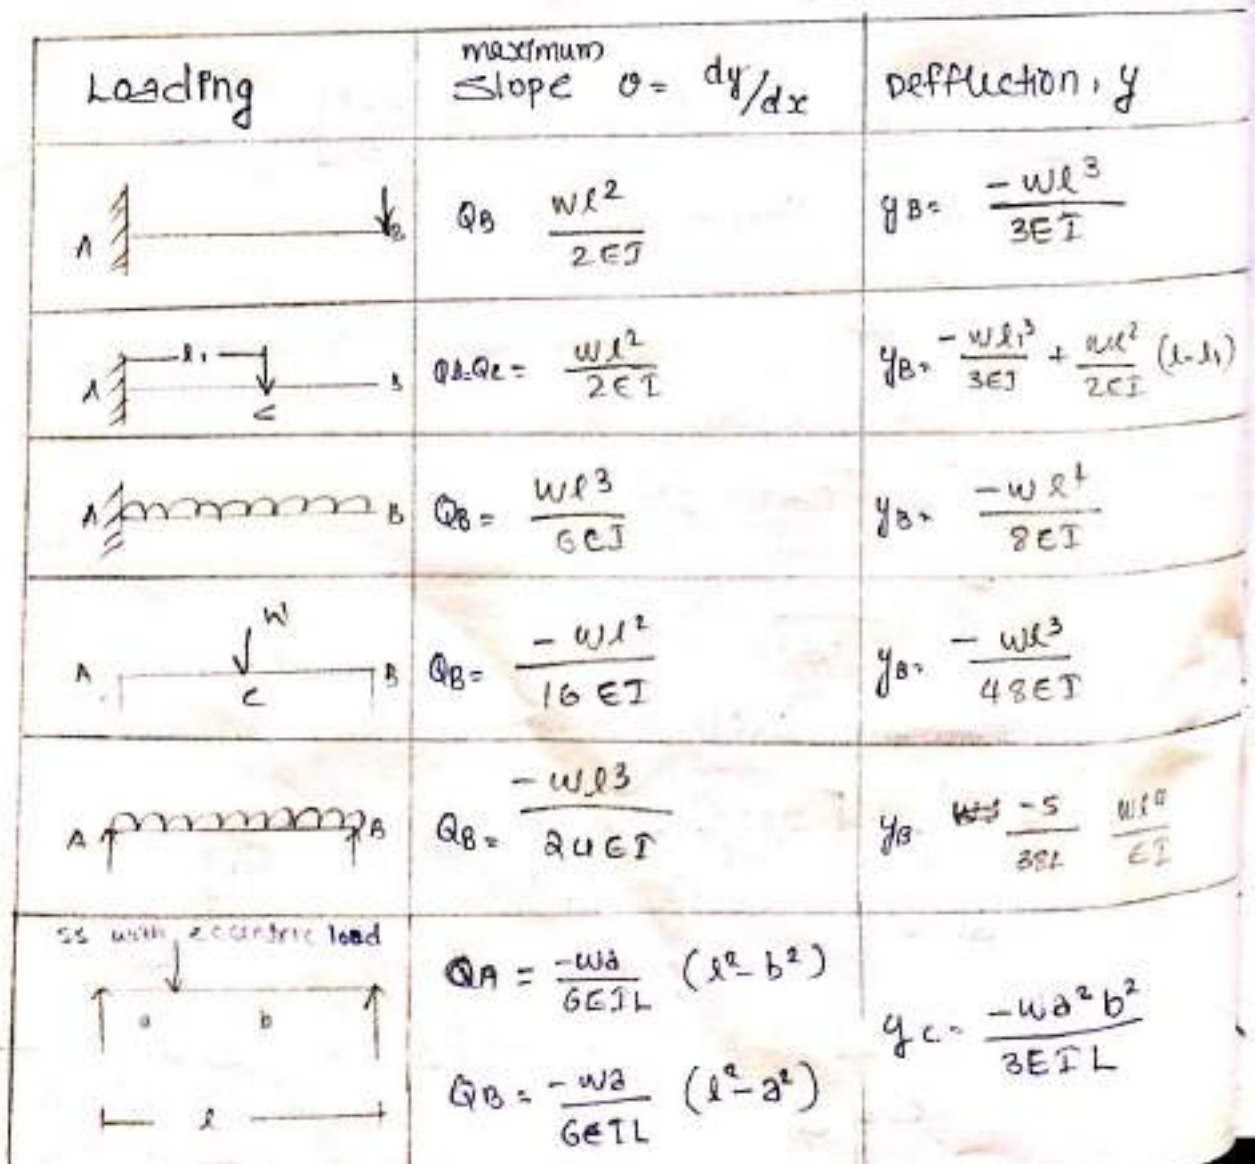 Loading
maximum
Slope θ = dy/dx
Deffluction, y
A B
QB Wl²/2EI
yB = -Wl³/3EI
A l₁ C B
QB=QC = Wl²/2EI
yB = -Wl₁³/3EI + Wl²/2EI (l-l₁)
A B
QB = Wl3/6EI
yB = -wl⁴/8EI
A W C B
QB = -Wl²/16EI
yB = -Wl³/48EI
A B
QB = -Wl3/24EI
yB -5/384 wl⁴/EI
SS with eccentric load
a b
l
QA = -Wa/6EIL (l²-b²)
QB = -Wa/6EIL (l²-a²)
yC = -Wa²b²/3EIL